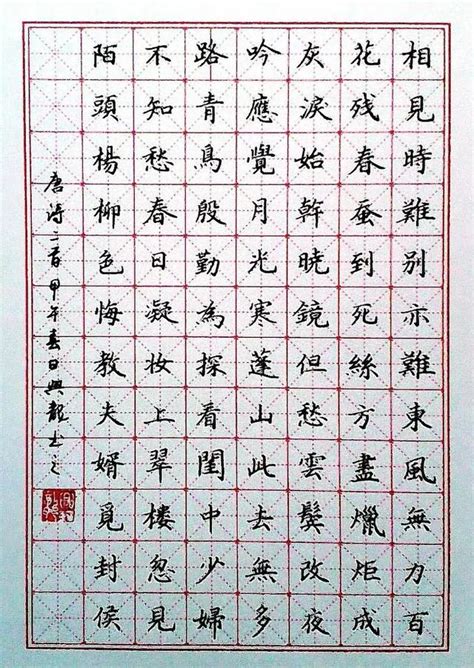 相見時難別亦難東風無力百
花残春蚕到死絲方盡爉炬成
灰淚始幹暁鏡但愁雲鬓改夜
吟應覺月光寒蓬山此去無多
路青鳥殷勤為探看閨中少婦
不知愁春日凝妆上翠楼忽見
陌頭楊柳色悔教夫婿覓封侯
唐诗二首甲午春日興龍书之